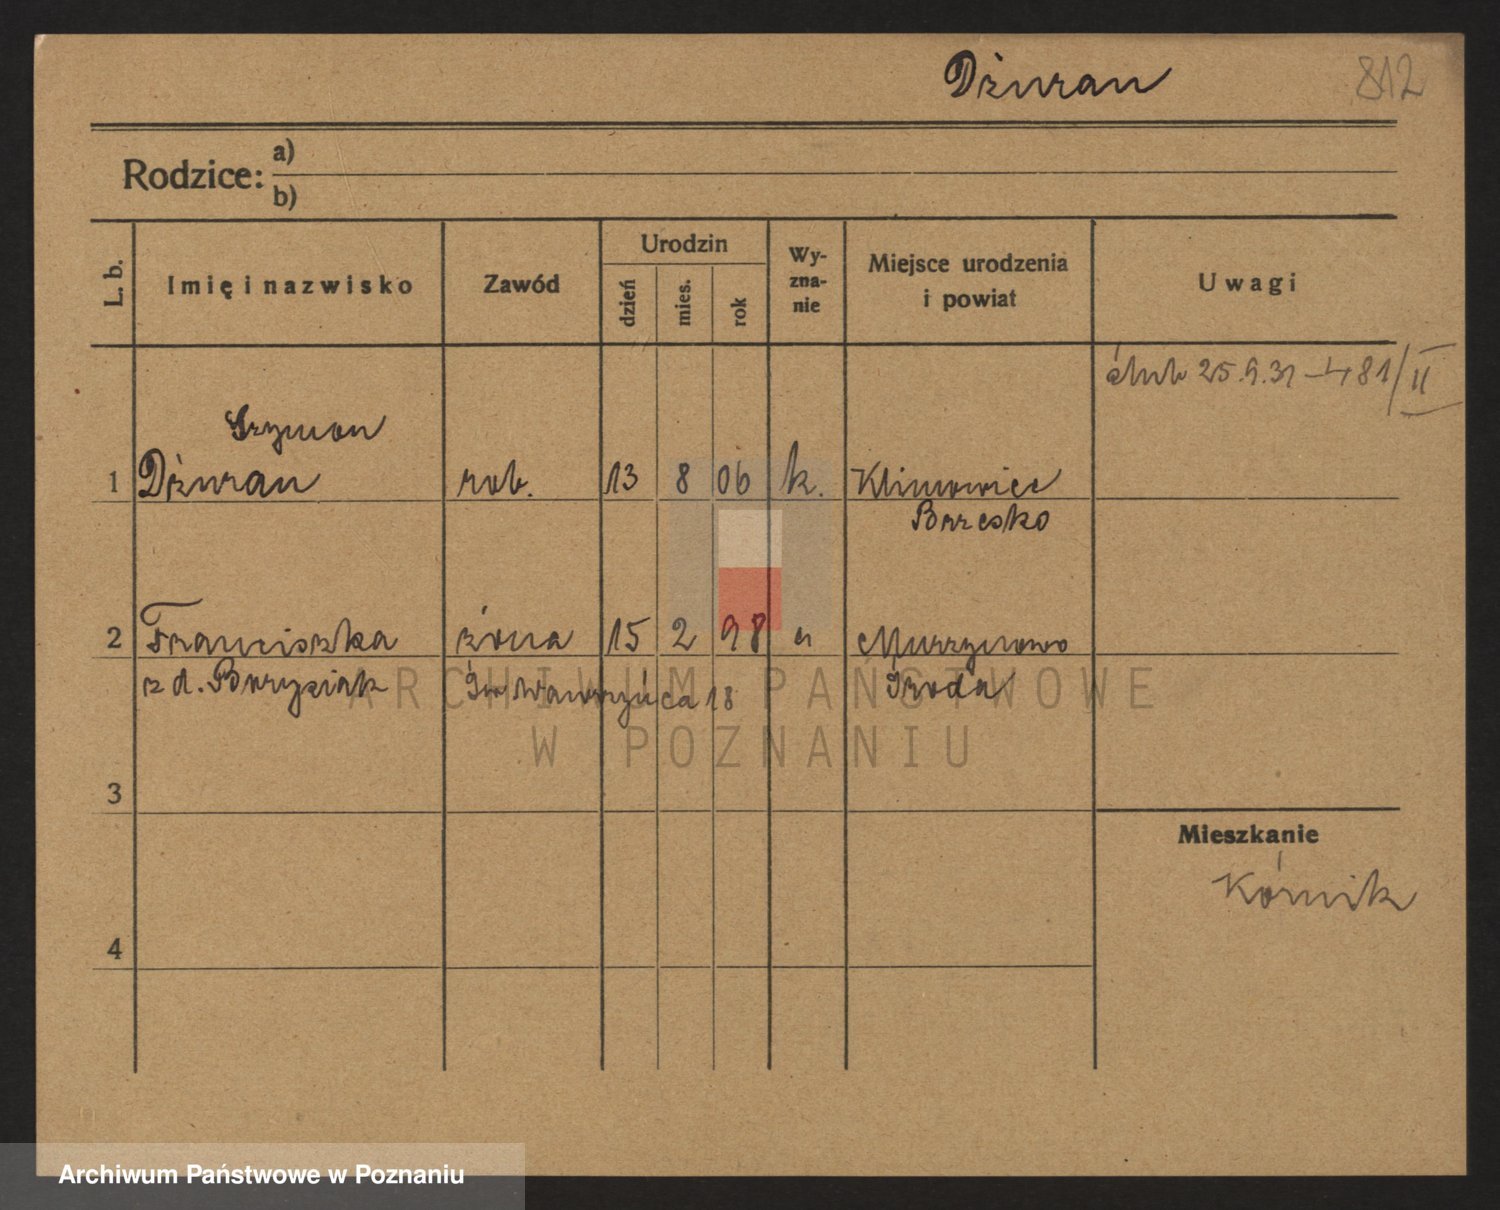 Dżuran 812
Rodzice: a)
b)
L. b. Imię i nazwisko Zawód Urodzin dzień mies. rok Wy-zna-nie Miejsce urodzenia i powiat Uwagi
ślub 25.9.31 – 481/II
Szymon
1 Dżuran rob. 13 8 06 k. Klimowice
Brzesko
2 Franciszka żona 15 2 98 " Murzynowo
z d. Borysiak Św Wawrzyńca 18 Środa
ARCHIWUM PAŃSTWOWE
W POZNANIU
3
Mieszkanie
Kórnik
4
Archiwum Państwowe w Poznaniu